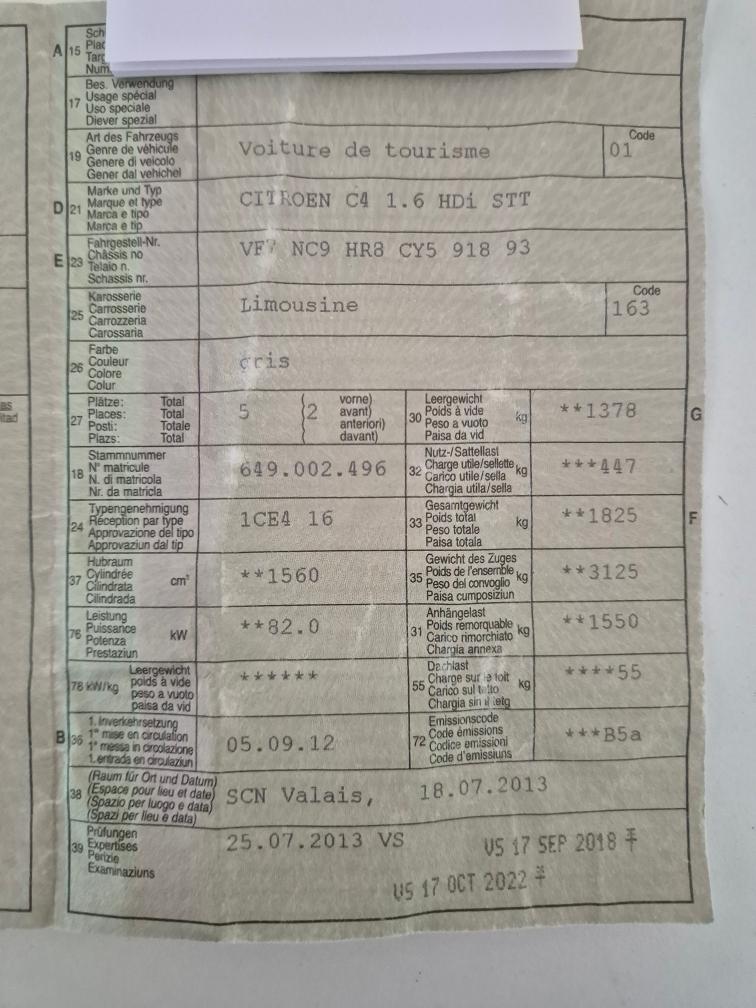 A 15 Sch
Plac
Targ
Num.
17 Bes. Verwendung
Usage spécial
Uso speciale
Diever spezial
19 Art des Fahrzeugs
Genre de véhicule
Genere di veicolo
Gener dal vehichel
Voiture de tourisme
Code
01
D 21 Marke und Typ
Marque et type
Marca e tipo
Marca e tip
CITROEN C4 1.6 HDi STT
E 23 Fahrgestell-Nr.
Châssis no
Telaio n.
Schassis nr.
VF7 NC9 HR8 CY5 918 93
25 Karosserie
Carrosserie
Carrozzeria
Carossaria
Limousine
Code
163
26 Farbe
Couleur
Colore
Colur
gris
27 Plätze: Total
Places: Total
Posti: Totale
Plazs: Total
5 (2 vorne)
avant)
anteriori)
davant)
30 Leergewicht
Poids à vide
Peso a vuoto
Paisa da vid
kg **1378 G
18 Stammnummer
N° matricule
N. di matricola
Nr. da matricla
649.002.496
32 Nutz-/Sattellast
Charge utile/sellette
Carico utile/sella
Chargia utila/sella
kg ***447
24 Typengenehmigung
Réception par type
Approvazione del tipo
Approvaziun dal tip
1CE4 16
33 Gesamtgewicht
Poids total
Peso totale
Paisa totala
kg **1825 F
37 Hubraum
Cylindrée
Cilindrata
Cilindrada
cm³ **1560
35 Gewicht des Zuges
Poids de l'ensemble
Peso del convoglio
Paisa cumposiziun
kg **3125
76 Leistung
Puissance
Potenza
Prestaziun
kW **82.0
31 Anhängelast
Poids remorquable
Carico rimorchiato
Chargia annexa
kg **1550
78 kW/kg Leergewicht
poids à vide
peso a vuoto
paisa da vid
******
55 Dachlast
Charge sur le toit
Carico sul tetto
Chargia sin il tetg
kg ****55
B 36 1. Inverkehrsetzung
1re mise en circulation
1a messa in circolazione
1. entrada en circulaziun
05.09.12
72 Emissionscode
Code émissions
Codice emissioni
Code d'emissiuns
***B5a
38 (Raum für Ort und Datum)
(Espace pour lieu et date)
(Spazio per luogo e data)
(Spazi per lieu e data)
SCN Valais, 18.07.2013
39 Prüfungen
Expertises
Perizie
Examinaziuns
25.07.2013 VS
VS 17 SEP 2018
VS 17 OCT 2022